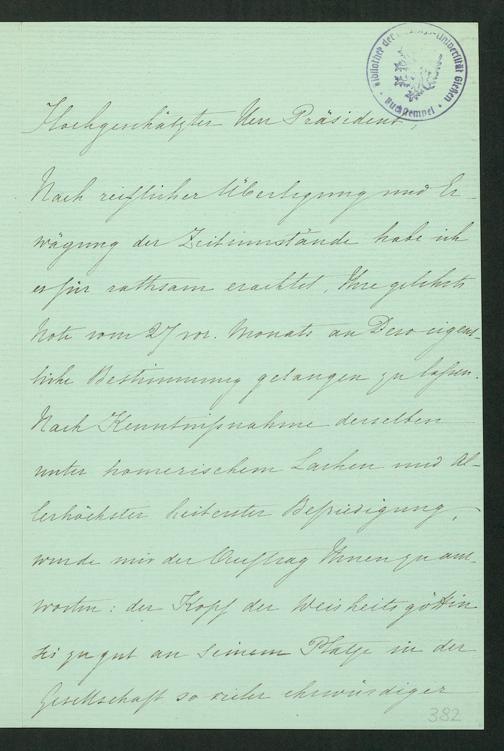 Bibliothek der Universität Gießen
Buchstempel
Hochgeschätzter Herr Präsident,
Nach reiflicher Überlegung und Er-
wägung der Zeitumstände habe ich
es für rathsam erachtet, Ihre gelehrte
Note vom 27 vor. Monats an Dero eigent-
liche Bestimmung gelangen zu laßen.
Nach Kenntnißnahme derselben
unter homerischem Lachen und Al-
lerhöchster heiterster Befriedigung,
wurde mir der Auftrag Ihnen zu ant-
worten: der Kopf der Weisheitsgöttin
sei zu gut an seinem Platze in der
Gesellschaft so vieler ehrwürdiger
382